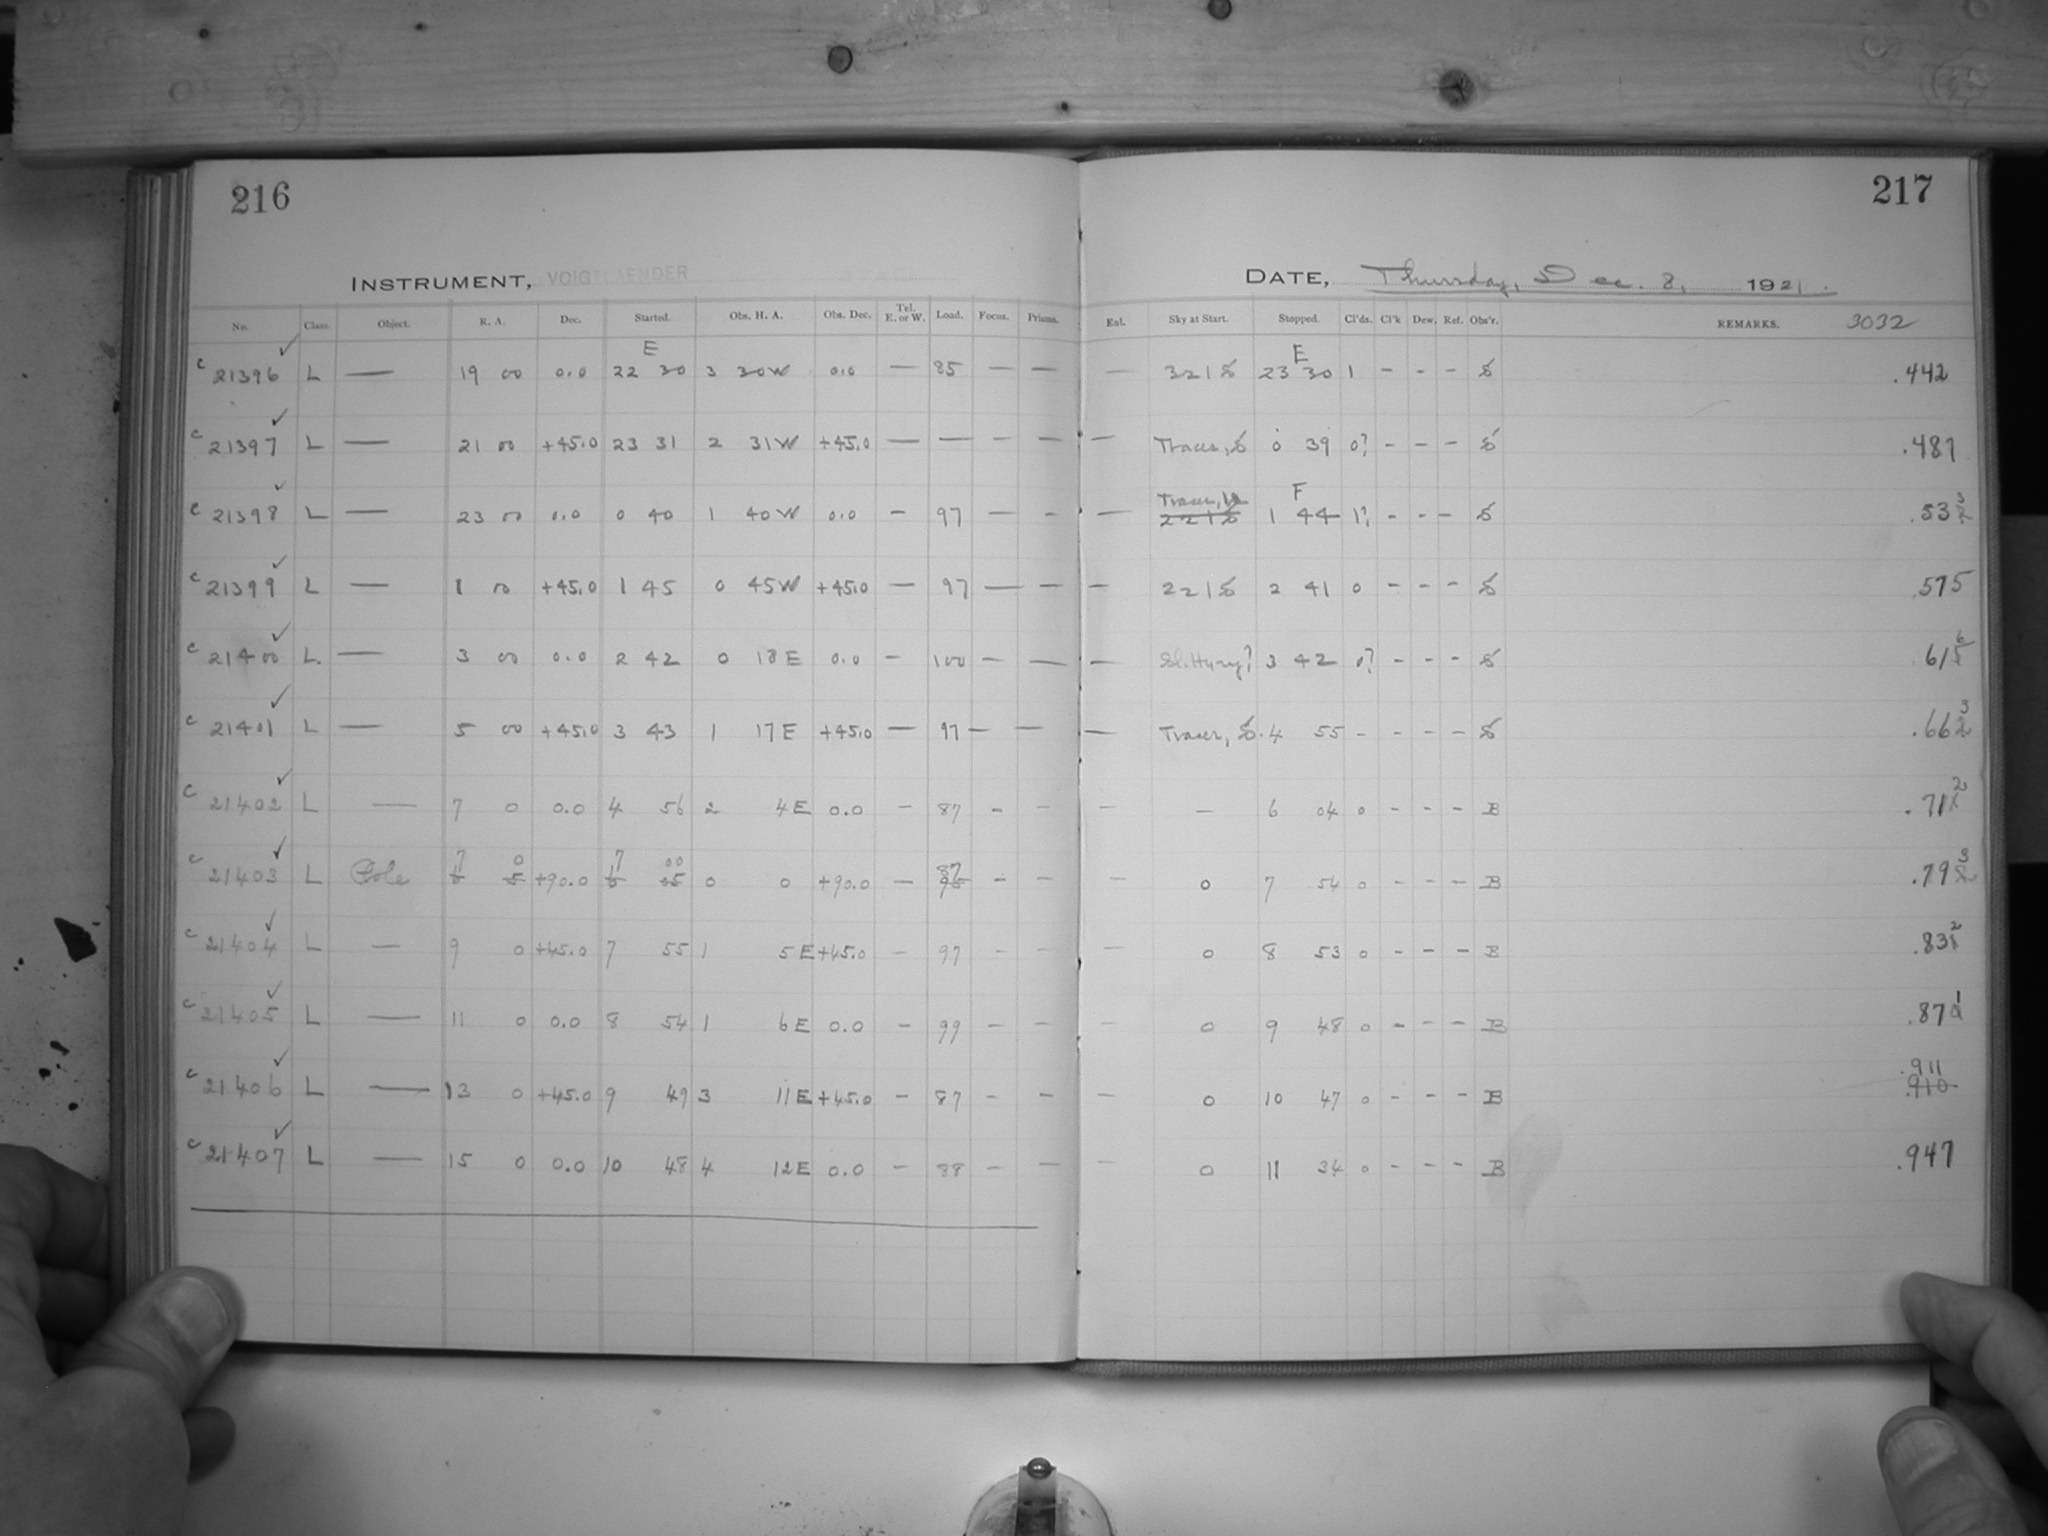 216
217
INSTRUMENT, VOIGTLAENDER
DATE, Thursday, Dec. 8, 1921.
No. Class. Object. R. A. Dec. Started. Obs. H. A. Obs. Dec. Tel. E. or W. Load. Focus. Prisms. Enl. Sky at Start. Stopped. Cl'ds. Cl'k Dew. Ref. Obs'r. REMARKS. 3032
E E
c 21396 ✓ L — 19 00 0.0 22 30 3 30W 0.0 — 85 — — — 3 2 1 23 30 1 - - - .442
c 21397 ✓ L — 21 00 +45.0 23 31 2 31W +45.0 — — — — — Traces, 0 39 0? - - - .487
Traces, F
c 21398 ✓ L — 23 00 0.0 0 40 1 40W 0.0 — 97 — — — 2 2 1 1 44 1? - - - .53 3
c 21399 ✓ L — 1 00 +45.0 1 45 0 45W +45.0 — 97 — — — 2 2 1 2 41 0 - - - .575
c 21400 ✓ L. — 3 00 0.0 2 42 0 18 E 0.0 — 100 — — — Sl. Hazy? 3 42 0? - - - .61 6
c 21401 ✓ L — 5 00 +45.0 3 43 1 17 E +45.0 — 97 — — — Traces, 4 55 - - - - .66 3 2
c 21402 ✓ L — 7 0 0.0 4 56 2 4 E 0.0 — 87 - - — — 6 04 0 - - - B .71 2 1
7 0 7 00 87
c 21403 ✓ L Pole 6 5 +90.0 6 05 0 0 +90.0 — 98 - - — 0 7 54 0 - - - B .79 3 2
c 21404 ✓ L — 9 0 +45.0 7 55 1 5 E +45.0 — 97 - - — 0 8 53 0 - - - B .83 2 1
c 21405 ✓ L — 11 0 0.0 8 54 1 6 E 0.0 — 99 - - — 0 9 48 0 - - - B .87 1 0
.911
c 21406 ✓ L — 13 0 +45.0 9 49 3 11 E +45.0 — 87 - - — 0 10 47 0 - - - B .910
c 21407 ✓ L — 15 0 0.0 10 48 4 12 E 0.0 — 88 - - — 0 11 34 0 - - - B .947